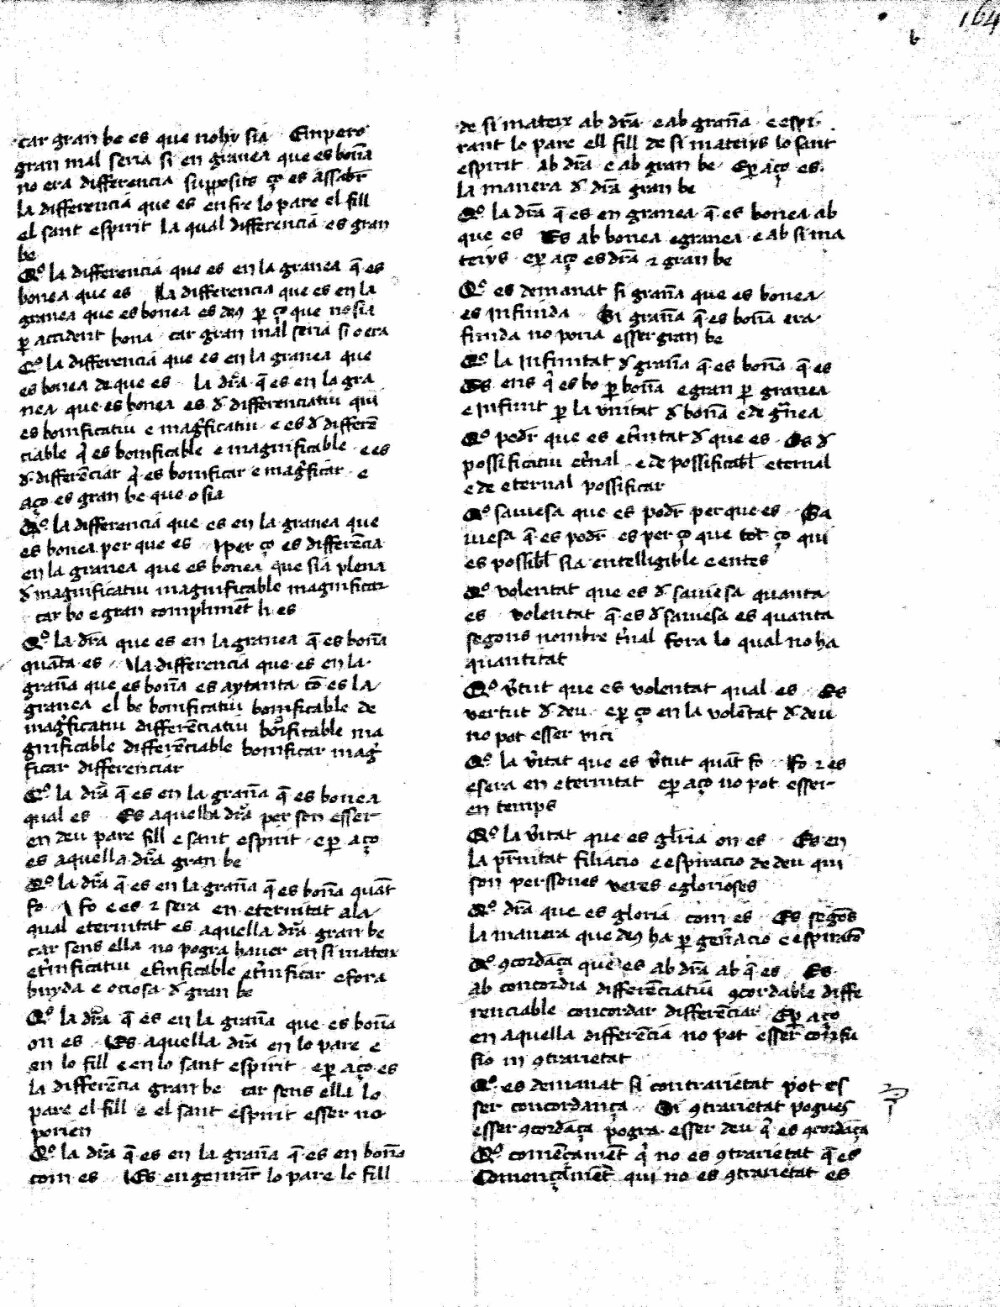 164
b
car gran be es que nohy sia Empero
gran mal seria si en granea que es boña
no era differencia supposits ço es assabr
la differencia que es enfre lo pare el fill
el sant espirit la qual differencia es gran
be
Qo la differencia que es en la granea q̄ es
bonea que es la differencia que es en la
granea que es bonea es deꝰ ꝑ ço que no sia
ꝑ accident bona car gran mal seria si o era
Qo la differencia que es en la granea que
es bonea de que es la dr̄a q̄ es en la gra
nea que es bonea es d̓ differenciatiu qui
es bonificatiu e mag̓ficatiu e es d̓ differē
ciable q̓ es bonificable e magnificable e es
d̓ differēciar q̓ es bonificar e mag̓ficar e
aço es gran be que o sia
Qo la differencia que es en la granea que
es bonea per que es per ço es differēcia
en la granea que es bonea que sia plena
d̓ magnificatiu magnificable magnificar
car bo e gran complimēt li es
Qo la dr̄a que es en la granea q̄ es boña
quāta es la differencia que es en la
grañа que es boña es aytanta cō es la
granea el be bonificatiu bonificable de
mag̓ficatiu differēciatiu bonificable ma
gnificable differēciable bonificar mag̓
ficar differenciar
Qo la dr̄a q̄ es en la graña q̄ es bonea
qual es Es aquella dr̄a per son esser
en deu pare fill e sant espirit e ꝑ aço
es aquella dr̄a gran be
Qo la dr̄a q̄ es en la graña q̄ es boña quāt
fo fo e es ⁊ sera en eternitat a la
qual eternitat es aquella dr̄a gran be
car sens ella no pogra haver en si mateix
et̓nificatiu et̓nificable et̓nificar e fora
buyda e ociosa d̓ gran be
Qo la dr̄a q̄ es en la graña que es boña
on es Es aquella dr̄a en lo pare e
en lo fill e en lo sant espirit e ꝑ aço es
la differēcia gran be car sens ella lo
pare el fill e el sant espirit esser no
porien
Qo la dr̄a q̄ es en la graña q̄ es en boña
com es Es engenrāt lo pare lo fill
de si mateix ab dr̄a e ab graña e espi
rant lo pare ell fill de si mateiys lo sant
espirit ab dr̄a e ab gran be E ꝑ aço es
la manera d̓ dr̄a gran be
Qo la dr̄a q̄ es en granea q̄ es bonea ab
que es Es ab bonea e granea e ab si ma
teiys e ꝑ aço es dr̄a ⁊ gran be
Qo es demanat si graña que es bonea
es infinida Si graña q̄ es boña era
finida no poria esser gran be
Qo la infinitat d̓ graña q̄ es boña q̄ es
Es ens q̓ es bo ꝑ boña e gran ꝑ granea
e infinit ꝑ la unitat d̓ boña e de gr̄nea
Qo poder que es et̓nitat d̓ que es Es d̓
possificatiu et̓nal e de possificabl̄ eternal
e de eternal possificar
Qo saviesa que es podr̄ per que es Sa
viesa q̄ es podr̄ es per ço que tot ço qui
es possibl̄ sia entelligible e entes
Qo volentat que es d̓ saviesa quanta
es volentat q̄ es d̓ saviesa es quanta
segons nombre t̓nal fora lo qual no ha
quantitat
Qo v̓tut que es volentat qual es Es
vertut d̓ deu e ꝑ ço en la volētat d̓ deu
no pot esser vici
Qo la v̓itat que es v̓tut quāt fo Fo ⁊ es
e sera en eternitat e ꝑ aço no pot esser
en temps
Qo la v̓itat que es gl̄ia on es Es en
la pr̄nitat filiacio e espiracio de deu qui
son perssones veres e glorioses
Qo dr̄a que es gloria com es Es segōs
la manera que deꝰ ha ꝑ gen̄acio e espiracio
Qo ꝯcordāça que es ab dr̄a ab q̄ es Es
ab concordia differēciatiu ꝯcordable diffe
renciable concordar differēciar E ꝑ aço
en aquella differēcia no pot esser cōfu
sio ni ꝯtrarietat
Qo es demanat si contrarietat pot es
ser concordança Si ꝯtrarietat pogues
esser ꝯcordāça pogra esser deu q̄ es ꝯcordāça
Qo comēcamēt q̓ no es ꝯtrarietat q̄ es
Començamēt qui no es ꝯtrarietat es